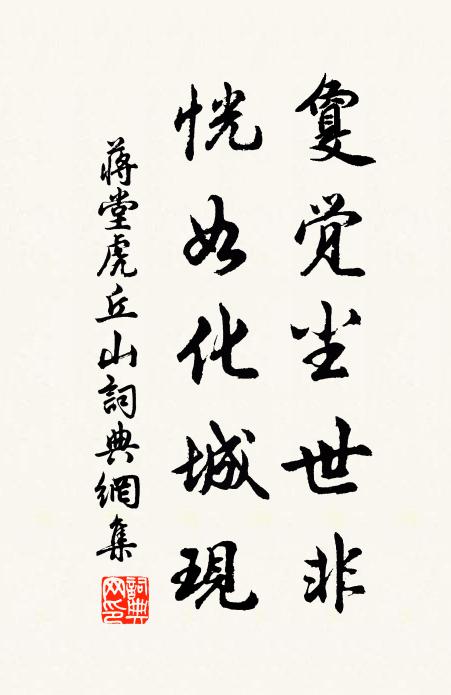 夐觉尘世非
恍如化城現
蔣堂虎丘山詞典網集
詞典
网印